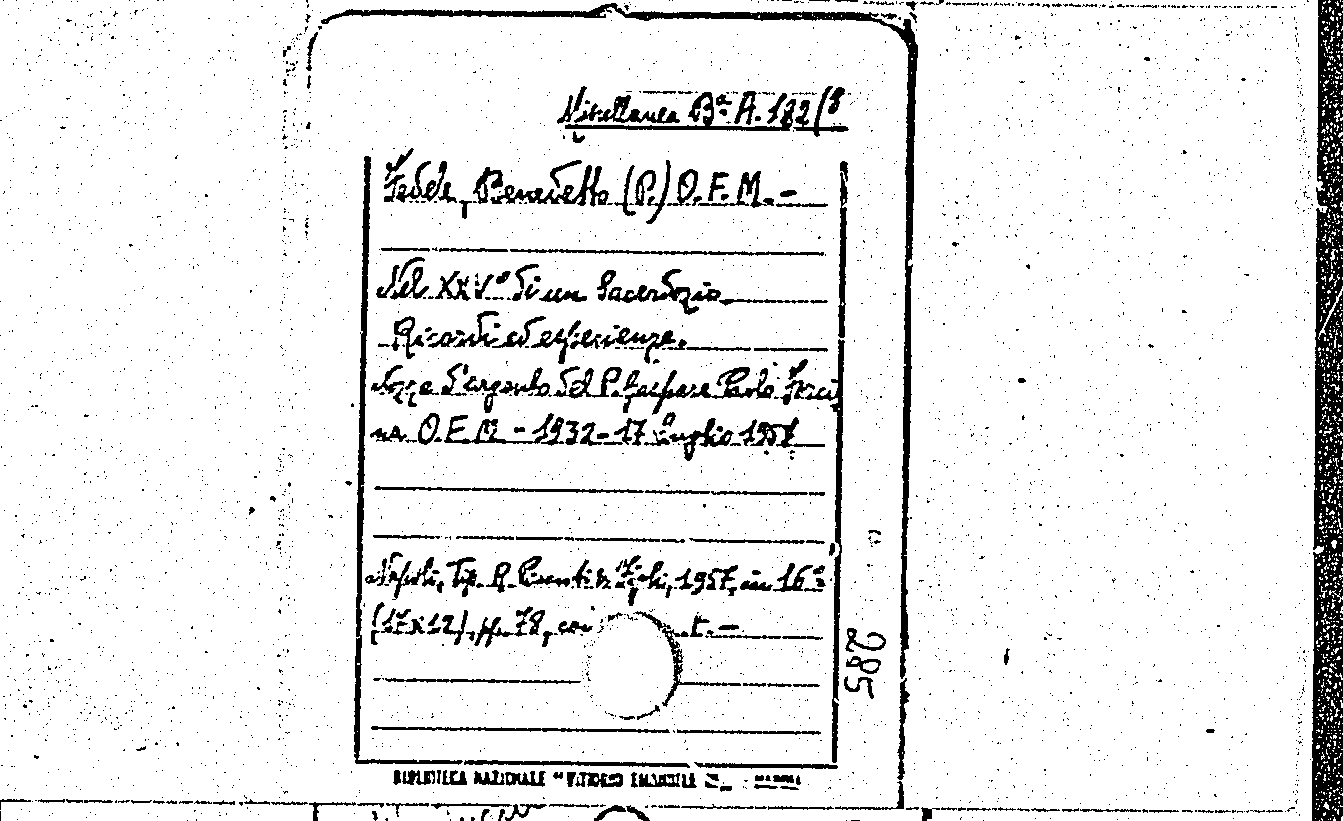 Miscellanea Bª A. 182/8
Fedele, Benedetto (P.) O.F.M. -
Nel XXVº di un Sacerdozio.
Ricordi ed esperienze.
Nozze d'argento del P. Gaspare Paolo
na O.F.M. - 1932 - 17 Luglio 1957
Napoli, Tip. R. Pironti & Figli, 1957, in 16º
(17x12), pp. 78, con t. -
285
BIBLIOTECA NAZIONALE "VITTORIO EMANUELE III" - NAPOLI